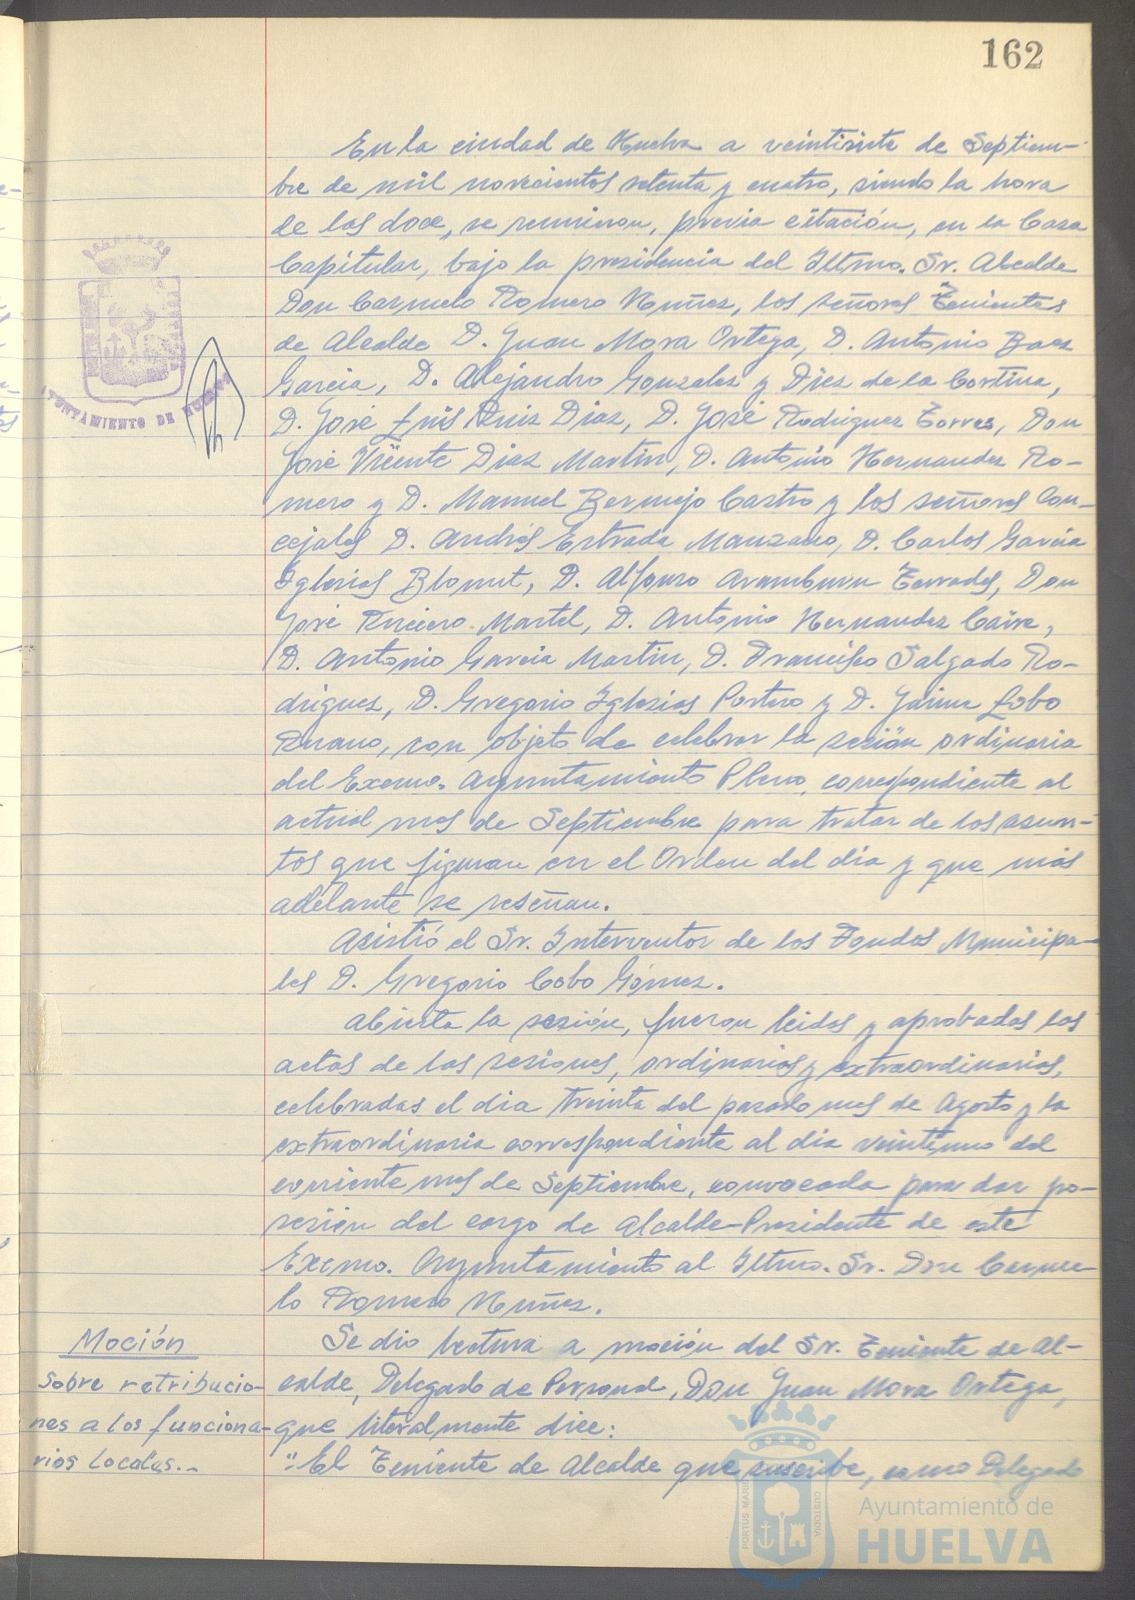 162
En la ciudad de Huelva a veintisiete de Septiem-
bre de mil novecientos setenta y cuatro, siendo la hora
de las doce, se reunieron, previa citación, en la Casa
Capitular, bajo la presidencia del Iltmo. Sr. Alcalde
Don Carmelo Romero Nuñez, los señores Tenientes
de Alcalde D. Juan Mora Ortega, D. Antonio Baez
Garcia, D. Alejandro Gonzalez y Diez de la Cortina,
D. José Luis Ruiz Diaz, D. José Rodriguez Torres, Don
José Vicente Diaz Martin, D. Antonio Hernandez Ro-
mero y D. Manuel Bermejo Castro y los señores Con-
cejales D. Andrés Estrada Manzano, D. Carlos Garcia
Iglesias Blomut, D. Alfonso Aramburu Terrades, Don
José Rucero Martel, D. Antonio Hernandez Caire,
D. Antonio Garcia Martin, D. Francisco Salgado Ro-
driguez, D. Gregorio Iglesias Portero y D. Jaime Lobo
Ruano, con objeto de celebrar la sesión ordinaria
del Excmo. Ayuntamiento Pleno, correspondiente al
actual mes de Septiembre para tratar de los asun-
tos que figuran en el Orden del dia y que más
adelante se reseñan.
Asistió el Sr. Interventor de los Fondos Municipa-
les D. Gregorio Cobo Gómez.
Abierta la sesión, fueron leidas y aprobadas las
actas de las sesiones, ordinarias y extraordinarias,
celebradas el dia treinta del pasado mes de Agosto y la
extraordinaria correspondiente al dia veintiuno del
corriente mes de Septiembre, convocada para dar po-
sesión del cargo de Alcalde-Presidente de este
Excmo. Ayuntamiento al Iltmo. Sr. Don Carme-
lo Romero Nuñez.
Moción
Sobre retribucio-
nes a los funciona-
rios Locales.-
Se dio lectura a moción del Sr. Teniente de Al-
calde, Delegado de Personal, Don Juan Mora Ortega,
que literalmente dice:
"El Teniente de Alcalde que suscribe, como Delegado
AYUNTAMIENTO DE HUELVA
PORTUS MARIS CUSTODIA
Ayuntamiento de
HUELVA